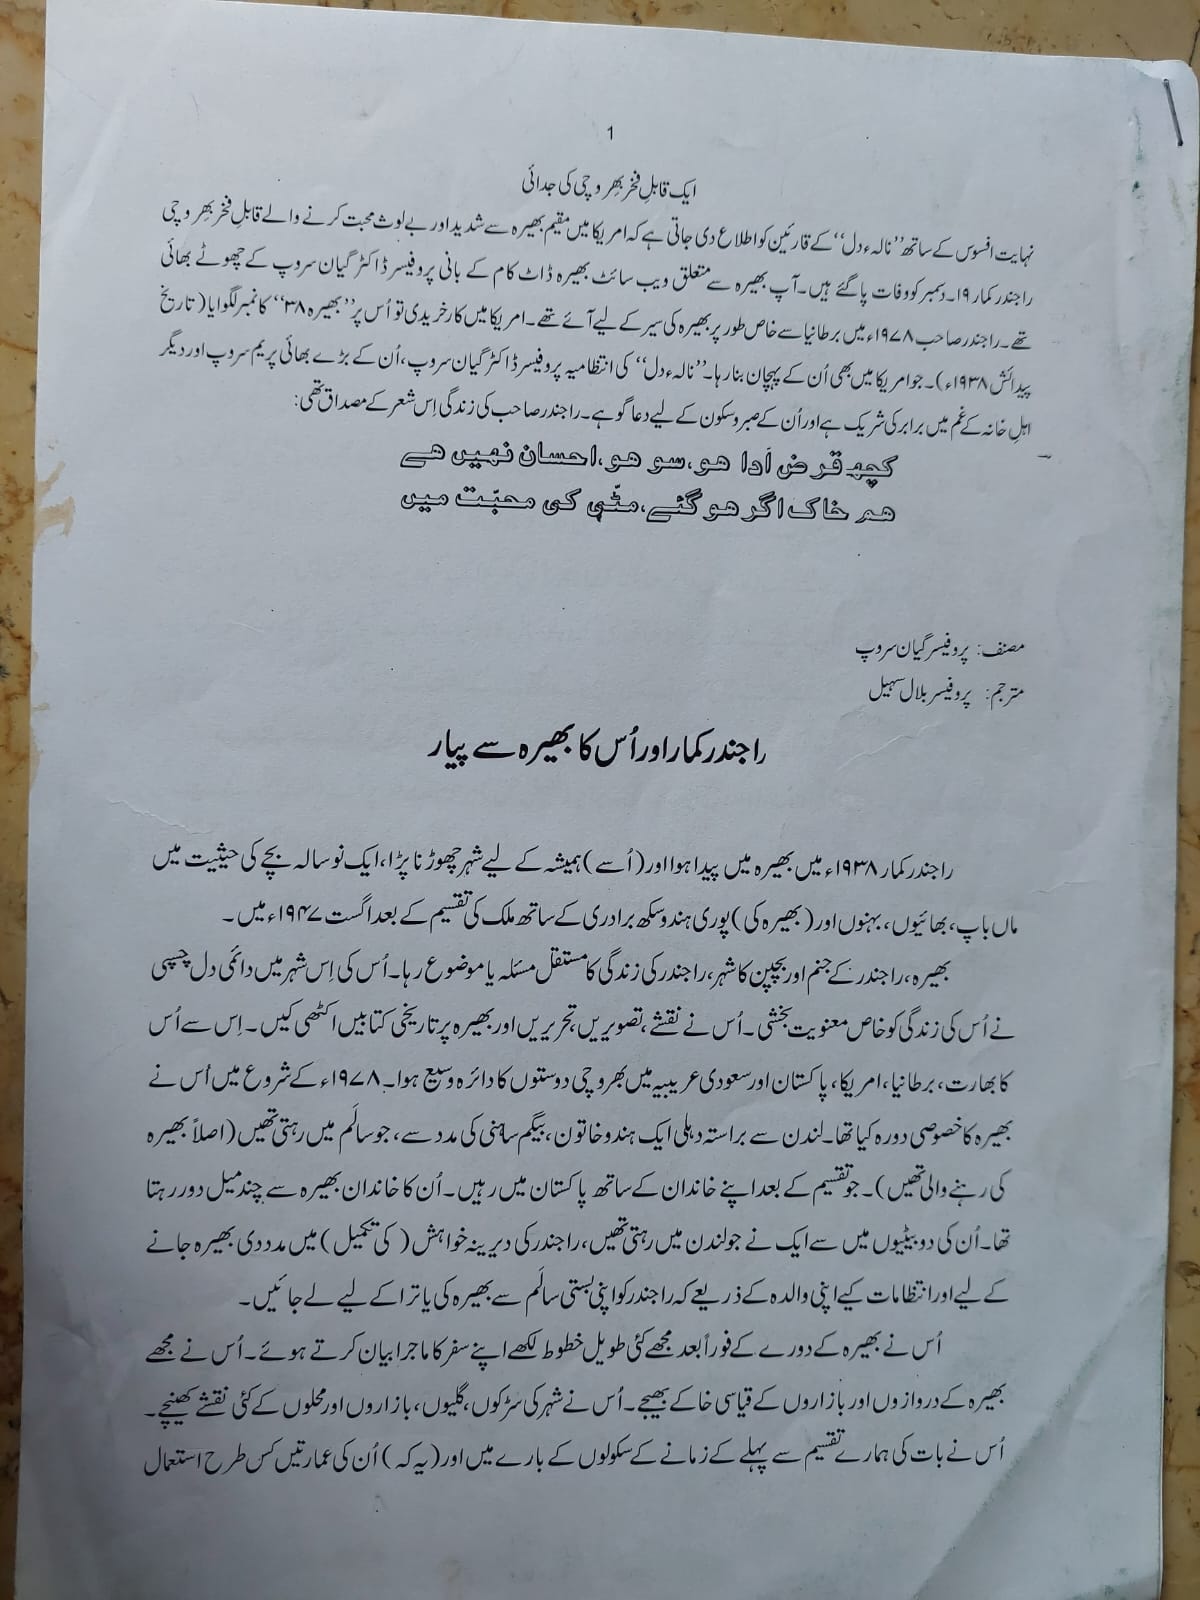 1
ایک قابلِ فخر بھِروچی کی جدائی
نہایت افسوس کے ساتھ ’’نالہءدل‘‘ کے قارئین کو اطلاع دی جاتی ہے کہ امریکا میں مقیم بھیرہ سے شدید اور بے لوث محبت کرنے والے قابلِ فخر بھِروچی
راجندر کمار ۱۹۔دسمبر کو وفات پا گئے ہیں۔ آپ بھیرہ سے متعلق ویب سائٹ بھیرہ ڈاٹ کام کے بانی پروفیسر ڈاکٹر گیان سروپ کے چھوٹے بھائی
تھے۔ راجندر صاحب ۱۹۷۸ء میں برطانیا سے خاص طور پر بھیرہ کی سیر کے لیے آئے تھے۔ امریکا میں کار خریدی تو اُس پر ’’بھیرہ ۳۸‘‘ کا نمبر لگوایا (تاریخ
پیدائش ۱۹۳۸ء)۔ جو امریکا میں بھی اُن کے پہچان بنا رہا۔ ’’نالہءدل‘‘ کی انتظامیہ پروفیسر ڈاکٹر گیان سروپ، اُن کے بڑے بھائی پریم سروپ اور دیگر
اہلِ خانہ کے غم میں برابر کی شریک ہے اور اُن کے صبر و سکون کے لیے دعا گو ہے۔ راجندر صاحب کی زندگی اِس شعر کے مصداق تھی:
کچھ قرض اَدا ھو، سو ھو، احسان نہیں ھے
ھم خاک اگر ھو گئے، مٹّی کی محبّت میں
مصنف: پروفیسر گیان سروپ
مترجم: پروفیسر بلال سہیل
راجندر کمار اور اُس کا بھیرہ سے پیار
راجندر کمار ۱۹۳۸ء میں بھیرہ میں پیدا ہوا اور (اُسے) ہمیشہ کے لیے شہر چھوڑنا پڑا، ایک نو سالہ بچے کی حیثیت میں
ماں باپ، بھائیوں، بہنوں اور (بھیرہ کی) پوری ہندو سکھ برادری کے ساتھ ملک کی تقسیم کے بعد اگست ۱۹۴۷ء میں۔
بھیرہ، راجندر کے جنم اور بچپن کا شہر، راجندر کی زندگی کا مستقل مسئلہ یا موضوع رہا۔ اُس کی اِس شہر میں دائمی دل چسپی
نے اُس کی زندگی کو خاص معنویت بخشی۔ اُس نے نقشے، تصویریں، تحریریں اور بھیرہ پر تاریخی کتابیں اکٹھی کیں۔ اِس سے اُس
کا بھارت، برطانیا، امریکا، پاکستان اور سعودی عریبیہ میں بھروچی دوستوں کا دائرہ وسیع ہوا۔ ۱۹۷۸ء کے شروع میں اُس نے
بھیرہ کا خصوصی دورہ کیا تھا۔ لندن سے براستہ دہلی ایک ہندو خاتون، بیگم ساہنی کی مدد سے، جو سالَم میں رہتی تھیں (اصلاً بھیرہ
کی رہنے والی تھیں)۔ جو تقسیم کے بعد اپنے خاندان کے ساتھ پاکستان میں رہیں۔ اُن کا خاندان بھیرہ سے چند میل دور رہتا
تھا۔ اُن کی دو بیٹیوں میں سے ایک نے جو لندن میں رہتی تھیں، راجندر کی دیرینہ خواہش (کی تکمیل) میں مدد دی بھیرہ جانے
کے لیے اور انتظامات کیے اپنی والدہ کے ذریعے کہ راجندر کو اپنی بستی سالَم سے بھیرہ کی یاترا کے لیے لے جائیں۔
اُس نے بھیرہ کے دورے کے فوراً بعد مجھے کئی طویل خطوط لکھے اپنے سفر کا ماجرا بیان کرتے ہوئے۔ اُس نے مجھے
بھیرہ کے دروازوں اور بازاروں کے قیاسی خاکے بھیجے۔ اُس نے شہر کی سڑکوں، گلیوں، بازاروں اور محلوں کے کئی نقشے کھینچے۔
اُس نے بات کی ہمارے تقسیم سے پہلے کے زمانے کے سکولوں کے بارے میں اور (یہ کہ) اُن کی عمارتیں کس طرح استعمال